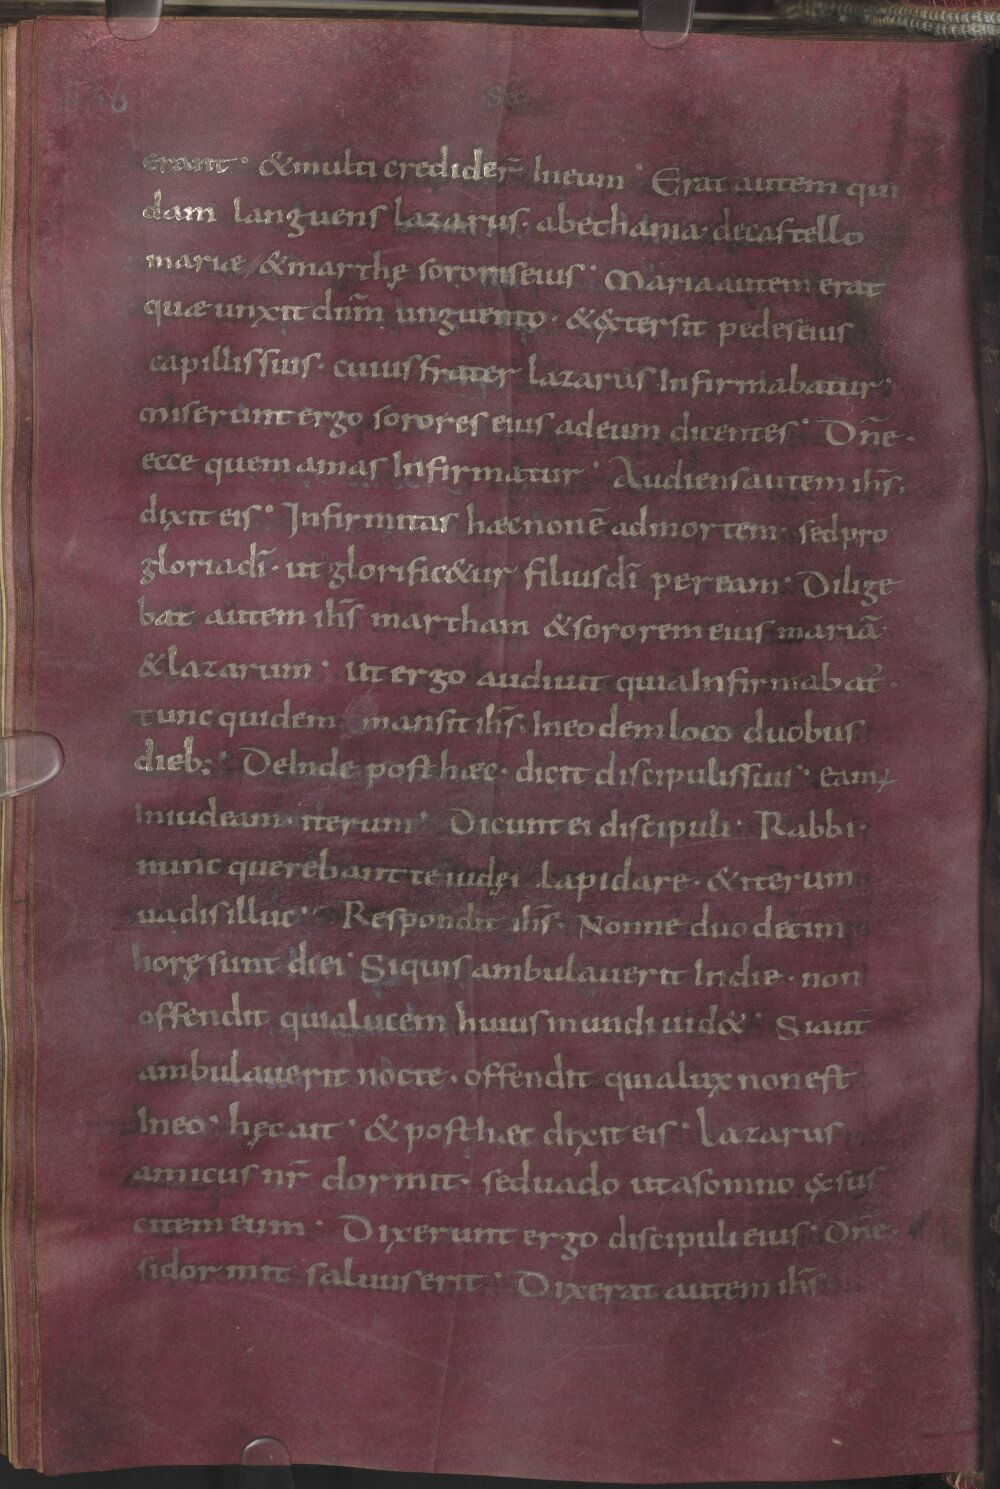 erant · & multi credider̄ In eum · Erat autem qui
dam languens lazarus · a bethania · de castello
mariæ & marthę sororis eius · Maria autem erat
quæ unxit dnm̄ unguento · & extersit pedes eius
capillis suis · cuius frater lazarus Infirmabatur ;
miserunt ergo sorores eius ad eum dicentes · Dn̄e ·
ecce quem amas Infirmatur · Audiens autem ihs̄ ·
dixit eis · Infirmitas hæc non ē ad mortem · sed pro
gloria dī · ut glorific&ur filius dī per eam · Dilige
bat autem ihs̄ martham & sororem eius mariā ·
& lazarum · ut ergo audiuit quia Infirmabat̄ ·
tunc quidem mansit ihs̄ · In eodem loco duobus
dieb; · DeInde post hæc · dicit discipulis suis · eam;
In iudeam · iterum · Dicunt ei discipuli · Rabbi ·
nunc querebant te iudęi lapidare · & iterum
uadis illuc · Respondit ihs̄ · Nonne duodecim
horę sunt diei · Si quis ambulauerit In die · non
offendit quia lucem huius mundi uid& · Si aut̄
ambulauerit nocte · offendit quia lux non est
In eo · hęc ait · & post hæc dixit eis · Lazarus
amicus nr̄ dormit · sed uado ut a somno exsus
citem eum · Dixerunt ergo discipuli eius · Dn̄e ·
si dormit saluus erit · Dixerat autem ihs̄